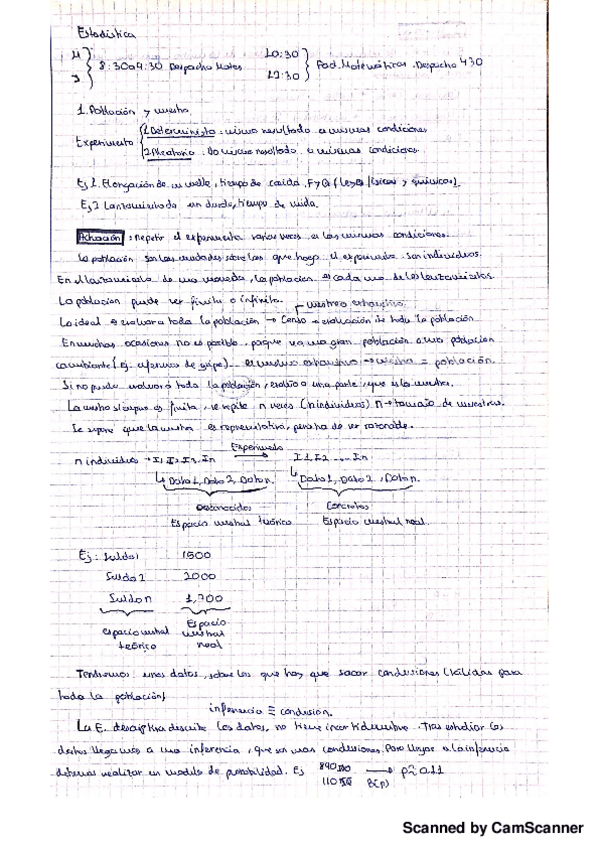 Estadística
8:30 a 9:30 Despacho Mates
10:30
12:30
Fac. Matemáticas. Despacho 430
1. Población y muestra.
Experimento
1. Determinista: mismo resultado a mismas condiciones
2. Aleatorio. No mismo resultado a mismas condiciones.
Ej 1. Elongación de un muelle, tiempo de caída, F y Q (leyes físicas y químicas).
Ej 2 Lanzamiento de un dado, tiempo de vida.
: repetir el experimento varias veces en las mismas condiciones.
La población son las unidades sobre las que hago el experimento son individuos.
En el lanzamiento de una moneda, la población es cada uno de los lanzamientos.
La población puede ser finita o infinita.
muestreo exhaustivo
Lo ideal es evaluar a toda la población → Censo → evaluación de toda la población
En muchas ocasiones no es posible, porque es una gran población o una población
cambiante (Ej. enfermos de gripe). el muestreo exhaustivo → muestra = población.
Si no puedo evaluar a toda la población, evalúo a una parte, que es la muestra.
La muestra siempre es finita, se repite n veces (n individuos) n → tamaño de muestra.
Se supone que la muestra es representativa, pero ha de ser razonable.
Experimento
n individuos → I1, I2, In
I1, I2 ... In
Dato 1, Dato 2, Dato n.
Dato 1, Dato 2, Dato n.
Desconocidos
Concretos
Espacio muestral teórico
Espacio muestral real.
Ej: Sueldo 1 1500
Sueldo 2 2000
Sueldo n 1,700
espacio muestral teórico
Espacio muestral real
Tendremos unos datos, sobre los que hay que sacar conclusiones (válidas para
toda la población)
inferencia ≡ conclusión.
La E. descriptiva describe los datos, no tiene incertidumbre. Tras estudiar los
datos llegamos a una inferencia, que son unas conclusiones. Para llegar a la inferencia
debemos realizar un modelo de probabilidad. Ej
890
110
B(p)
p≃0.11
Scanned by CamScanner